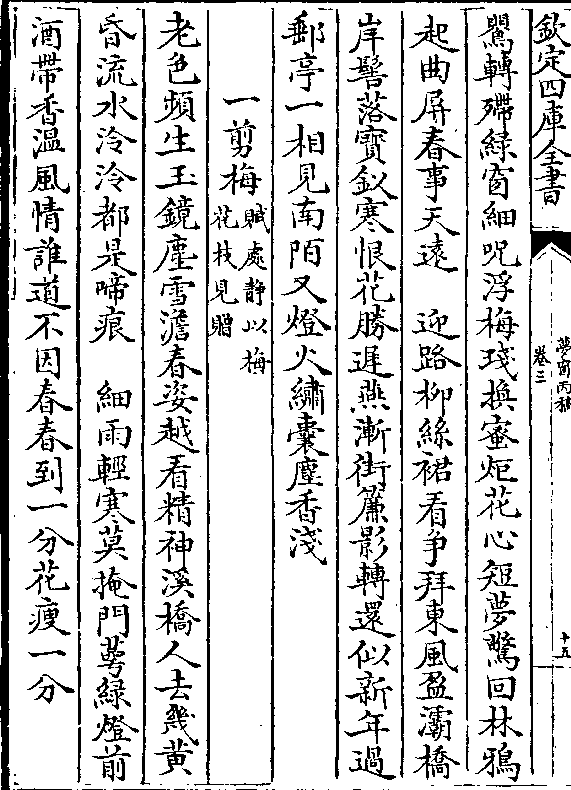 欽定四庫全書
夢窗丙稿
卷三
十五
鸎轉殢綠窗細呪浮梅琖換蜜炬花心短夢驚回林鴉
起曲屏春事天遠　迎路柳絲裙看爭拜東風盈灞橋
岸髻落寶釵寒恨花勝遲燕漸街簾影轉還似新年過
郵亭一相見南陌又燈火繡囊塵香淺
一剪梅賦處静以梅花枝見贈
老色頻生玉鏡塵雪澹春姿越看精神溪橋人去幾黄
昏流水泠泠都是啼痕　細雨輕寒莫掩門蕚綠燈前
酒帶香温風情誰道不因春春到一分花瘦一分